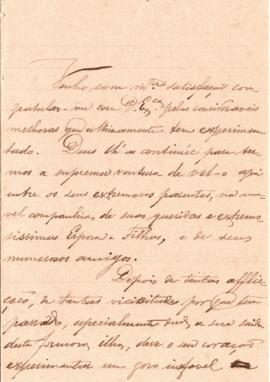 Venho, com mta satisfação con-
gratular-me com V. Exca pelas consideraveis
melhoras que ultimamente tem experimen-
tado. Deus lh'as continúe para ter-
mos a suprema ventura de vel-o aqui
entre os seus extremosos parentes, na ama-
vel companhia de suas queridas e extremo-
sissimas Esposa e Filhas, e de seus
numerosos amigos.
Depois de tantas afflic-
ções, de tantas vicissitudes, por que tem
passado, especialmente desde a sua sahida
desta formosa ilha, deve o seu coração
experimentar um goso ineffavel